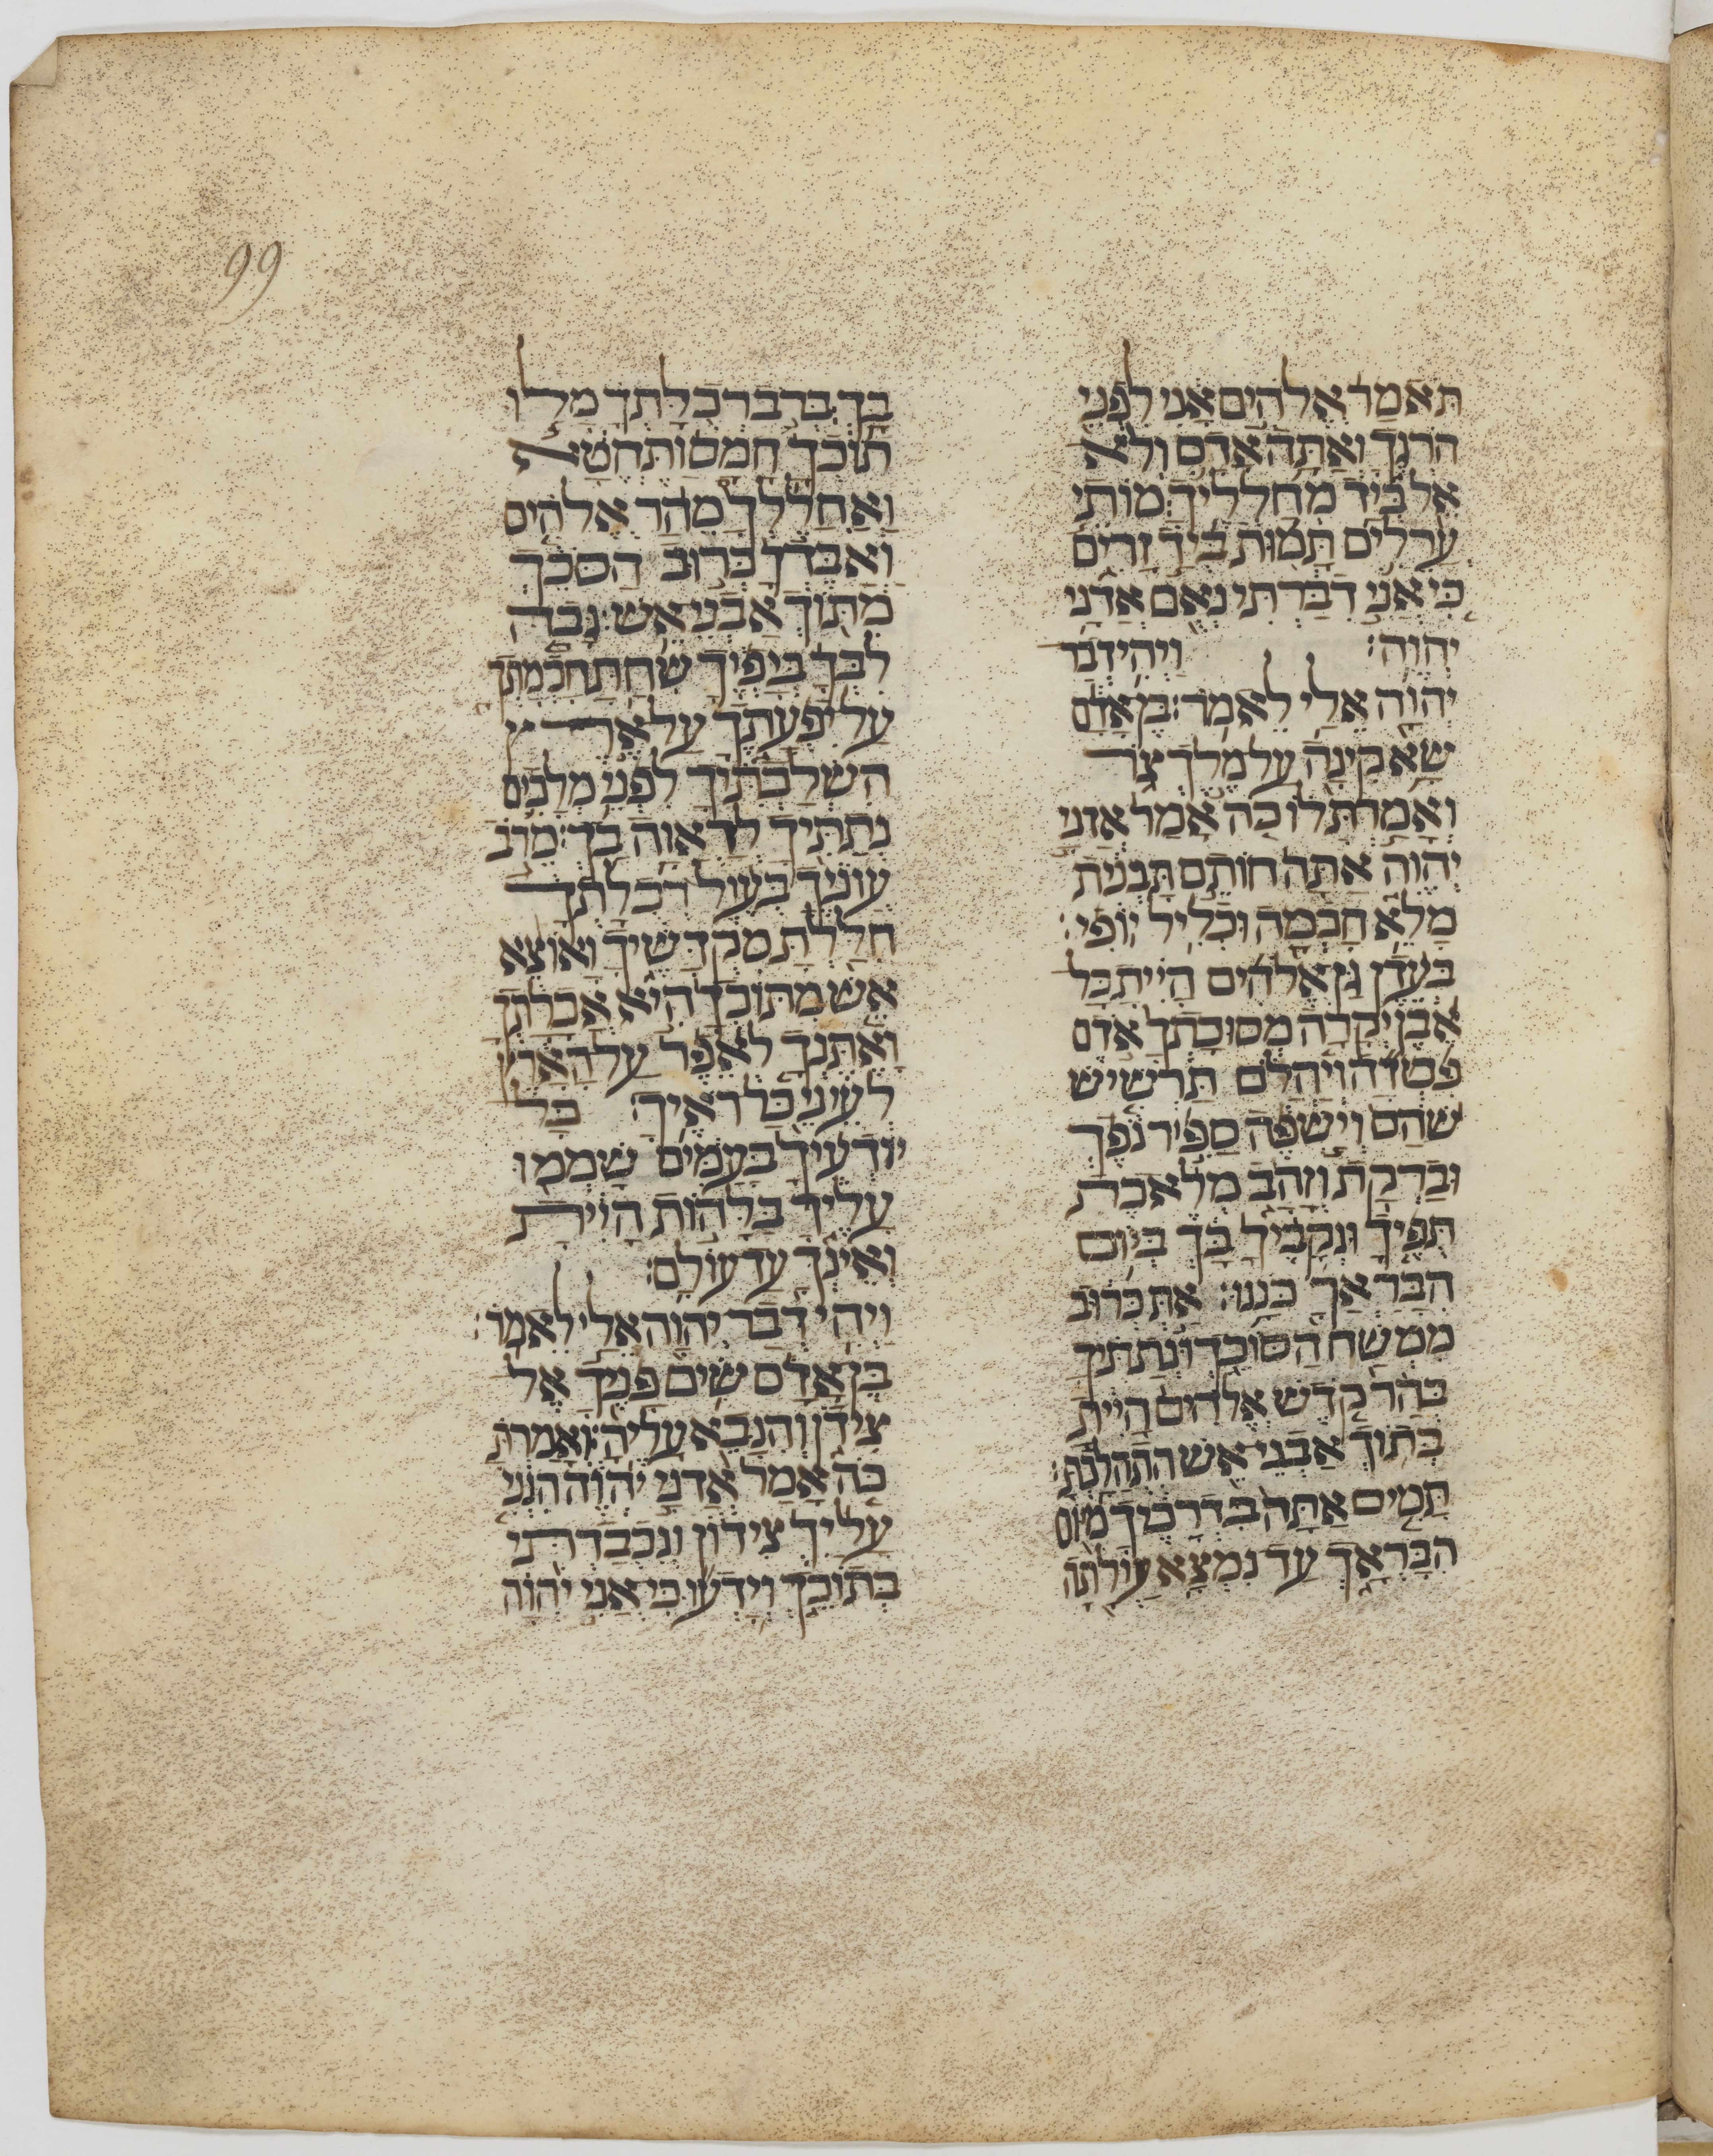 99
תאמר אלהים אני לפני
הרגך ואתה אדם ולא
אל ביד מחלליך מותי
ערלים תמות ביד זרים
כי אני דברתי נאם אדני
יהוה: ויהי דבר
יהוה אלי לאמר: בן אדם
שא קינה על מלך צור
ואמרת לו כה אמר אדני
יהוה אתה חותם תבנית
מלא חכמה וכליל יופי:
בעדן גן אלהים היית כל
אבן יקרה מסוכתך אדם
פטדה ויהלם תרשיש
שהם וישפה ספיר נפך
וברקת וזהב מלאכת
תפיך ונקביך בך ביום
הבראך כננו: את כרוב
ממשח הסוכך ונתתיך
בהר קדש אלהים היית
בתוך אבני אש התהלכת:
תמים אתה בדרכיך מיום
הבראך עד נמצא עולתה
בך: ברב רכלתך מלו
תוכך חמס ותחטא
ואחללך מהר אלהים
ואבדך כרוב הסכך
מתוך אבני אש: גבה
לבך ביפיך שחת חכמתך
על יפעתך על ארץ
השלכתיך לפני מלכים
נתתיך לראוה בך: מרב
עוניך בעול רכלתך
חללת מקדשיך ואוצא
אש מתוכך היא אכלתך
ואתנך לאפר על הארץ
לעיני כל ראיך: כל
יודעיך בעמים שממו
עליך בלהות היית
ואינך עד עולם:
ויהי דבר יהוה אלי לאמר:
בן אדם שים פניך אל
צידון והנבא עליה: ואמרת
כה אמר אדני יהוה הנני
עליך צידון ונכבדתי
בתוכך וידעו כי אני יהוה